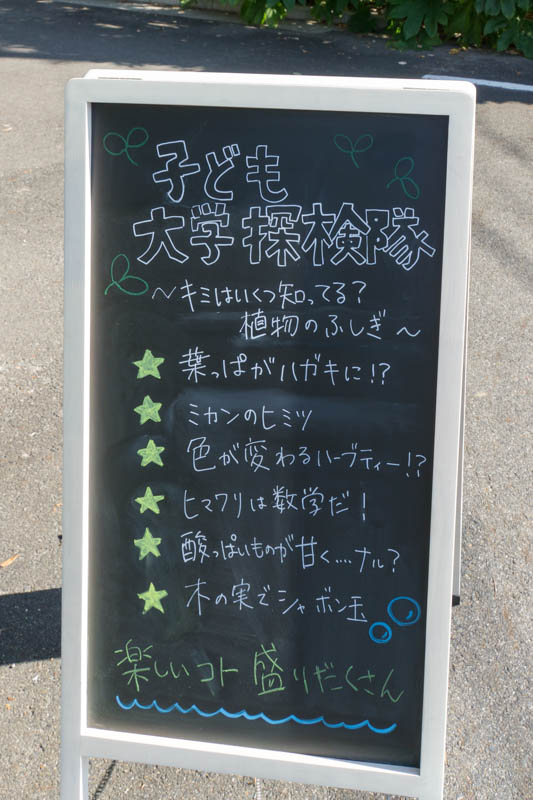 子ども
大学探検隊
～キミはいくつ知ってる？
植物のふしぎ～
★ 葉っぱがハガキに!?
★ ミカンのヒミツ
★ 色が変わるハーブティー!?
★ ヒマワリは数学だ！
★ 酸っぱいものが甘く‥‥ナル？
★ 木の実でシャボン玉
楽しいコト盛りだくさん